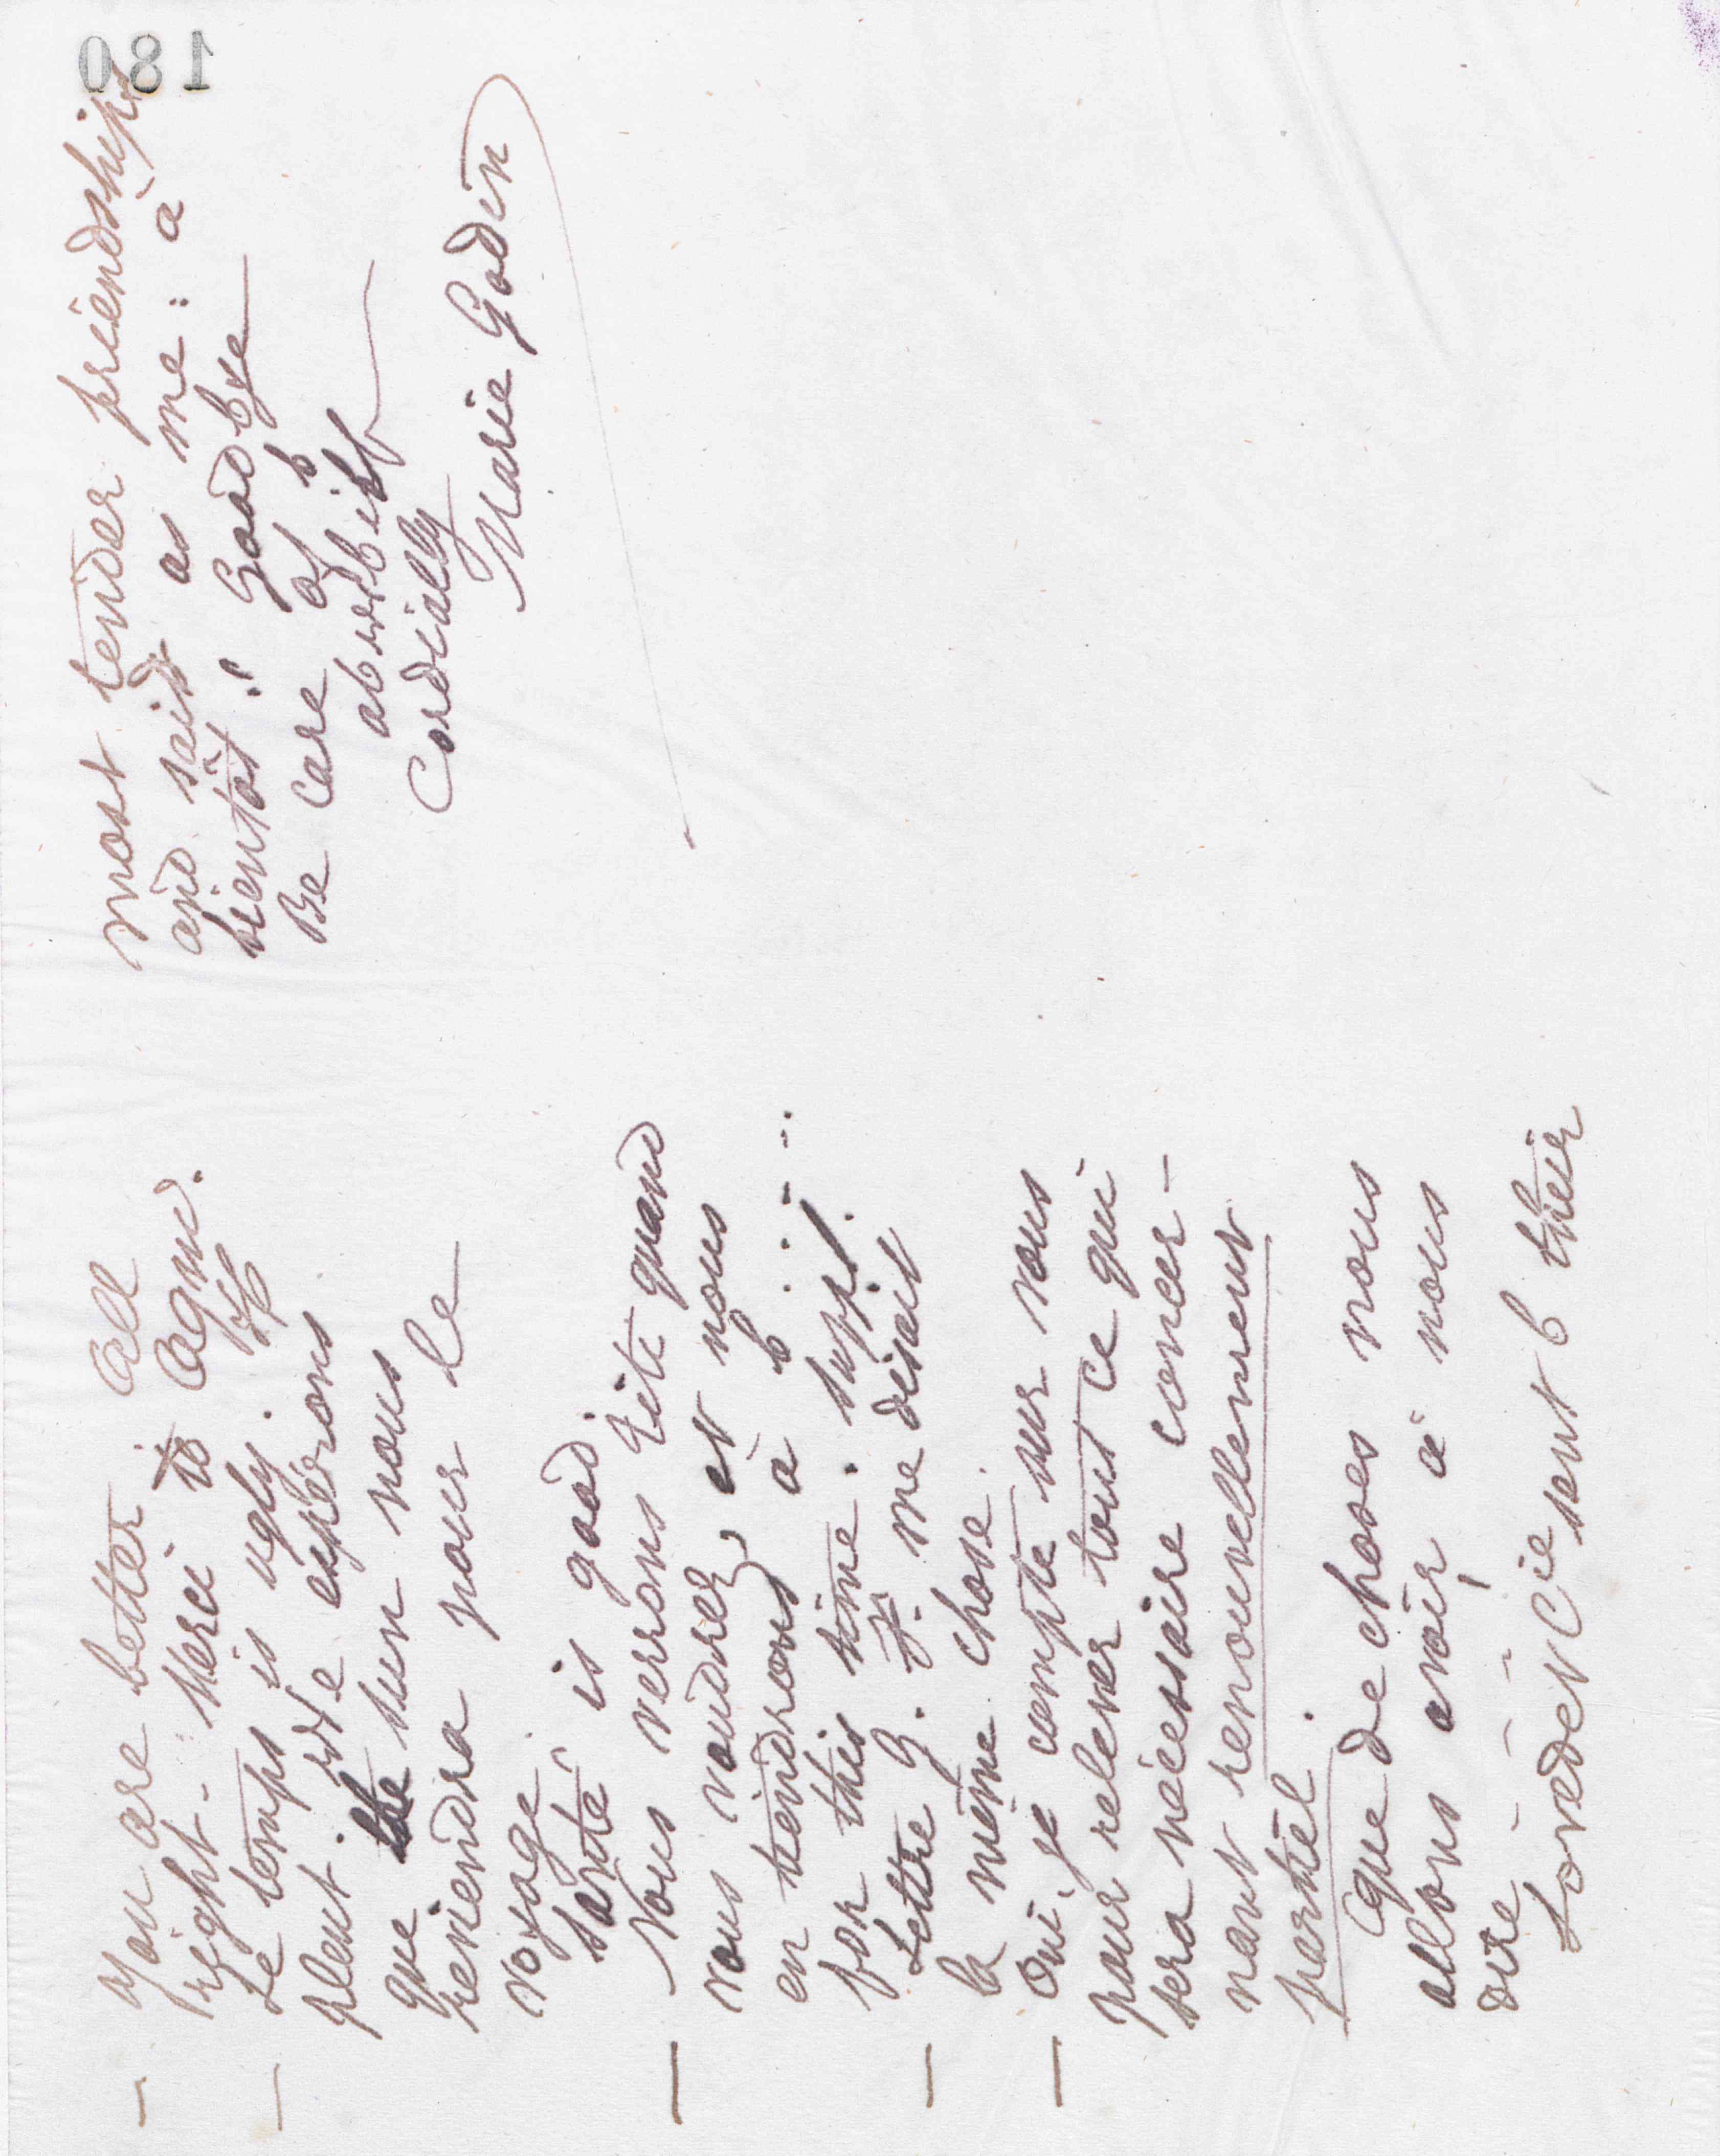 — You are better. All
right. Merci to Agnw.
— Le temps is ugly. It
pleut. We espérons
que the sun nous
reviendra pour le
voyage.
Santé is good.
— Nous verrons Tita quand
vous voudrez, et nous
en tiendrons à b.....
for this time. suppl.
— Lettre G. F. me disait
la même chose.
— Oui, je compte sur vous
pour relever tout ce qui
sera nécessaire concer-
nant renouvellement
partiel.
Que de choses nous
allons avoir à nous
dire - - -
Lovedet Cie sent b their
most tender friendships
and said as me: à
bientôt! Good bye
Be care of b
Cordially
Marie Godin
180